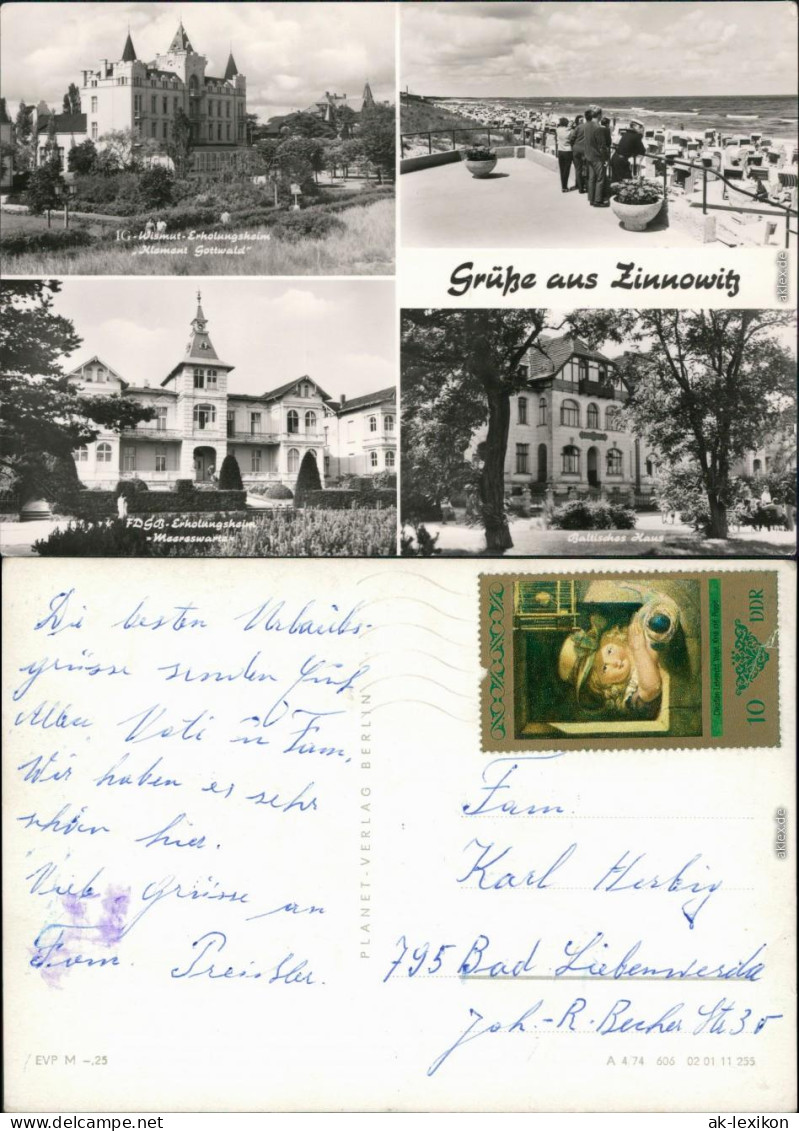 IG-Wismut-Erholungsheim
„Klement Gottwald"
Grüße aus Zinnowitz
FDGB-Erholungsheim
"Meereswarte"
Baltisches Haus
aklex.de
Die besten Urlaubs-
grüsse senden Euch
Alban Vati u Fam.
Wir haben es sehr
schön hier.
Viele Grüsse an
Fam. Preissler.
PLANET-VERLAG BERLIN
DDR
10
Fam.
Karl Herbig
795 Bad Liebenwerda
Joh.-R.-Becher Str 35
EVP M -,25
A 4.74 606 02 01 11 255
aklex.de
www.ak-lexikon.de
ak-lexikon